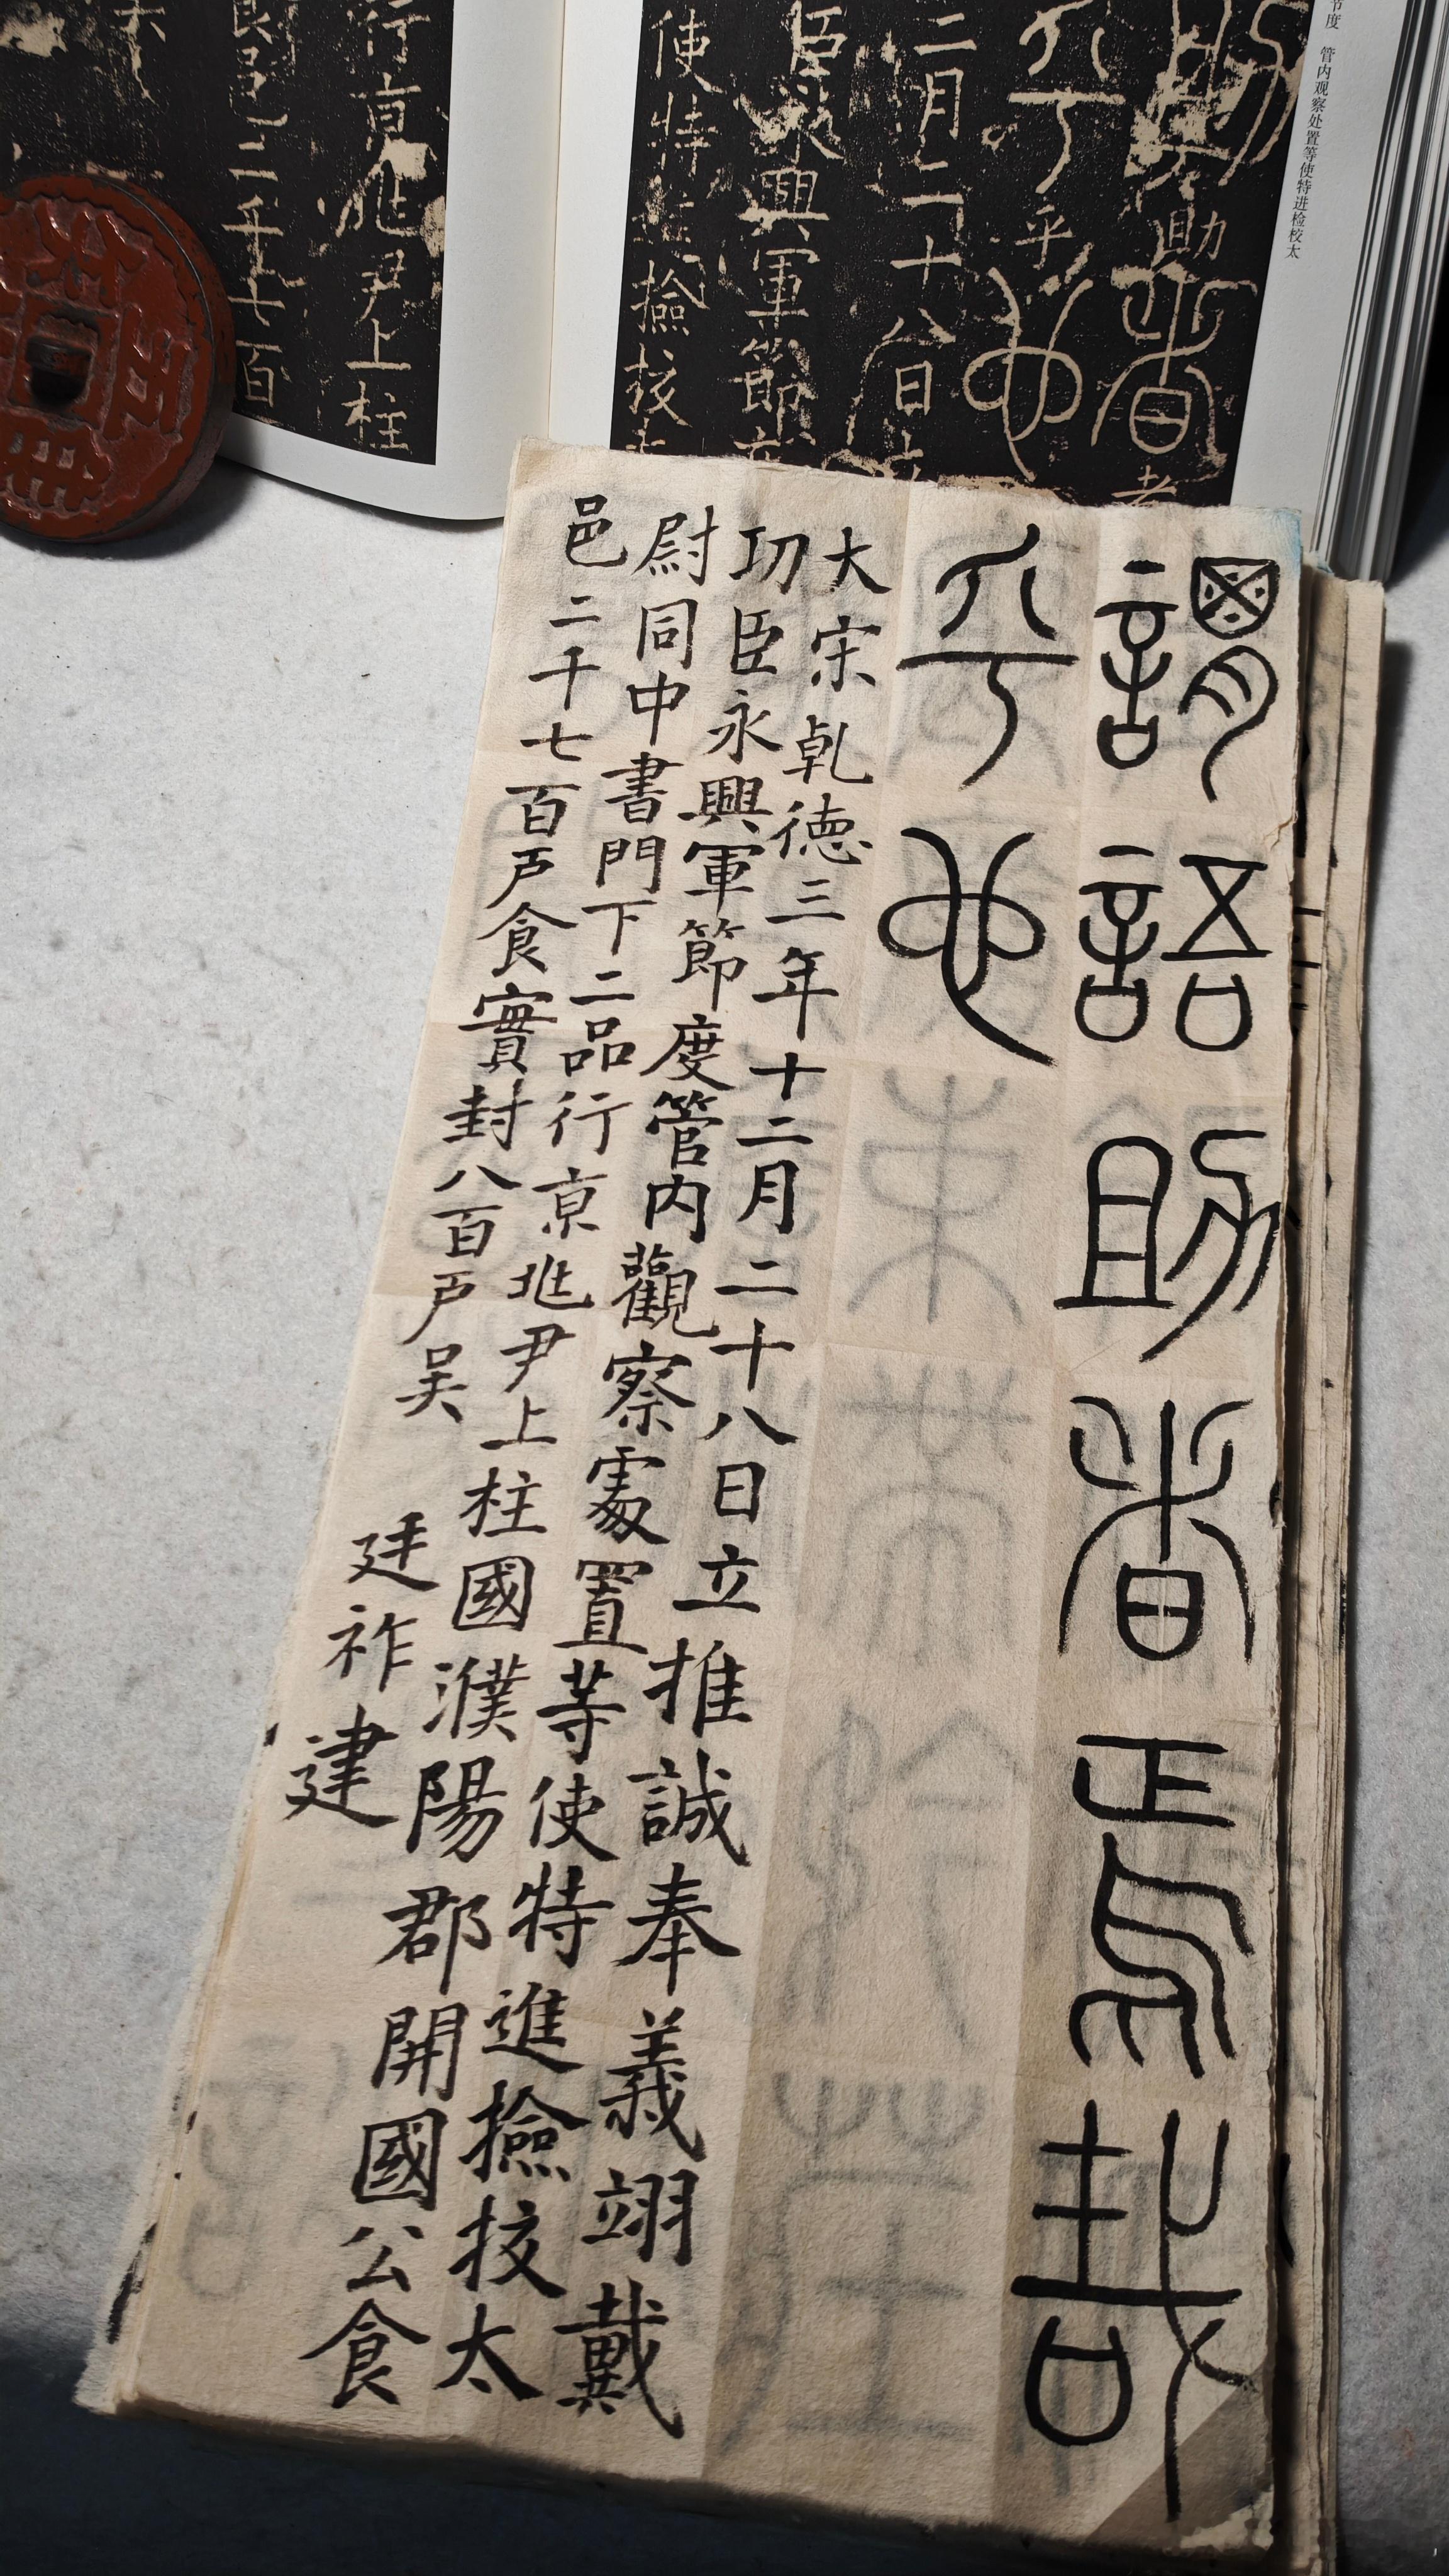 节度 管内观察处置等使特进检校太
助 助 者 者
乎 乎 也
二月二十八日立
臣永興軍節
使特進撿校
行亰兆尹上柱
食邑二千七百
謂語助者焉哉
乎也
大宋乹德三年十二月二十八日立推誠奉義翊戴
功臣永興軍節度管内觀察處置等使特進撿挍太
尉同中書門下二品行亰兆尹上柱國濮陽郡開國公食
邑二千七百戶食實封八百戶吴 廷祚建